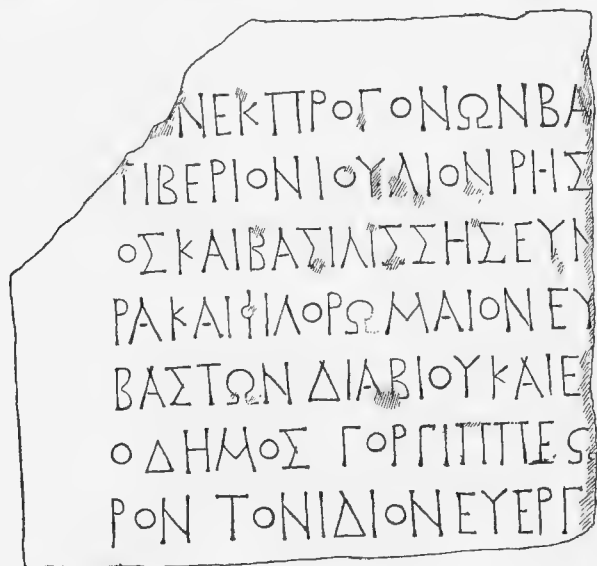 ΝΕΚΠΡΟΓΟΝΩΝΒΑ
ΤΙΒΕΡΙΟΝΙΟΥΛΙΟΝΡΗΣ
ΟΣΚΑΙΒΑΣΙΛΙΣΣΗΣΕΥΝ
ΡΑΚΑΙΦΙΛΟΡΩΜΑΙΟΝΕΥ
ΒΑΣΤΩΝΔΙΑΒΙΟΥΚΑΙΕ
ΟΔΗΜΟΣ ΓΟΡΓΙΠΠΕΩ
ΡΟΝ ΤΟΝΙΔΙΟΝΕΥΕΡΓ